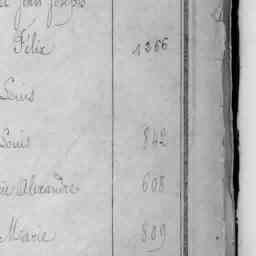 Jean Joseph
Félix 1266
Louis
Louis 842
Alexandre 608
Marie 809